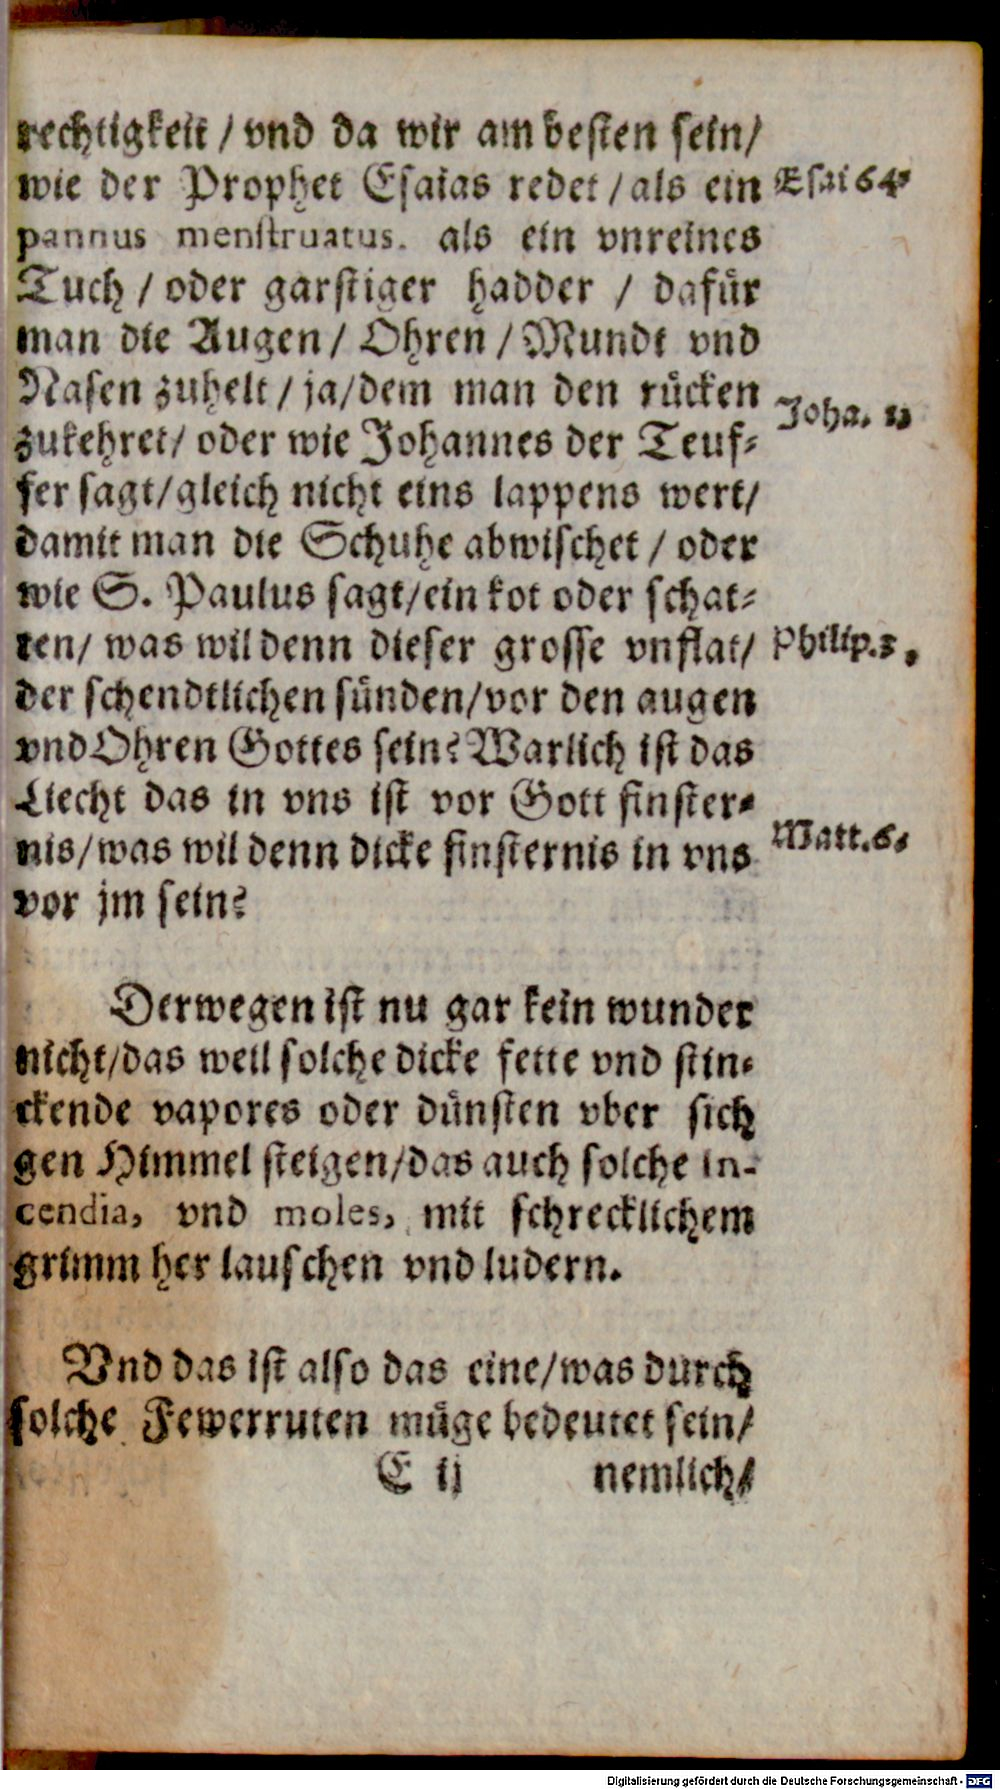 rechtigkeit / vnd da wir am besten sein/
wie der Prophet Esaias redet / als ein
Esai 64.
pannus menstruatus. als ein vnreines
Tuch / oder garstiger hadder / dafür
man die Augen / Ohren / Mundt vnd
Nasen zuhelt / ja/dem man den rücken
Joha. 1.
zukehret/ oder wie Johannes der Teuf-
fer sagt/gleich nicht eins lappens wert/
damit man die Schuhe abwischet / oder
wie S. Paulus sagt/ein kot oder schat-
ten/ was wil denn dieser grosse vnflat/
Philip.3.
der schendtlichen sünden/vor den augen
vnd Ohren Gottes sein? Warlich ist das
Liecht das in vns ist vor Gott finster-
nis/was wil denn dicke finsternis in vns
Matt.6.
vor jm sein?
Derwegen ist nu gar kein wunder
nicht/das weil solche dicke fette vnd stin-
ckende vapores oder dünsten vber sich
gen Himmel steigen/das auch solche in-
cendia, vnd moles, mit schrecklichem
grimm her lauschen vnd ludern.
Vnd das ist also das eine/was durch
solche Fewerruten müge bedeutet sein/
E ij nemlich/
Digitalisierung gefördert durch die Deutsche Forschungsgemeinschaft - DFG